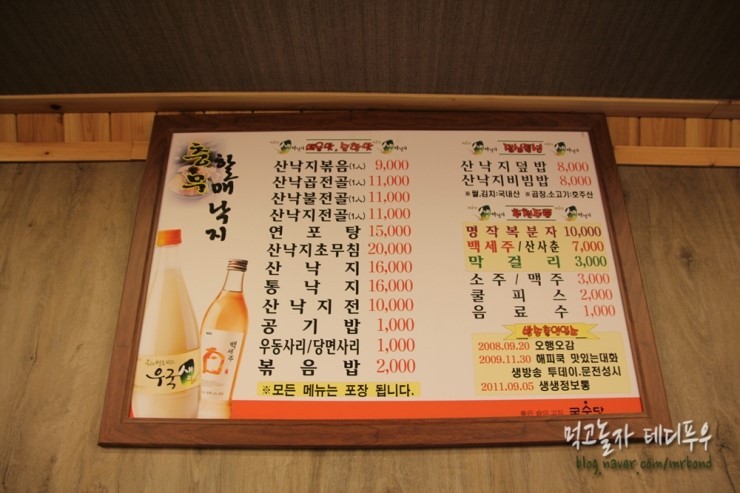 충무
할매낙지
산낙지볶음(1人) 9,000
산낙곱전골(1人) 11,000
산낙불전골(1人) 11,000
산낙지전골(1人) 11,000
연포탕 15,000
산낙지초무침 20,000
산낙지 16,000
통낙지 16,000
산낙지전 10,000
공기밥 1,000
우동사리/당면사리 1,000
볶음밥 2,000
※모든 메뉴는 포장 됩니다.
산낙지덮밥 8,000
산낙지비빔밥 8,000
※쌀,김치:국내산 ※곱창,소고기:호주산
명작복분자 10,000
백세주/산사춘 7,000
막걸리 3,000
소주/맥주 3,000
쿨피스 2,000
음료수 1,000
2008.09.20 오행오감
2009.11.30 해피쿡 맛있는대화
생방송 투데이.문전성시
2011.09.05 생생정보통
우국생
백세주
국순당
먹고놀자 테디푸우
blog.naver.com/mrbond